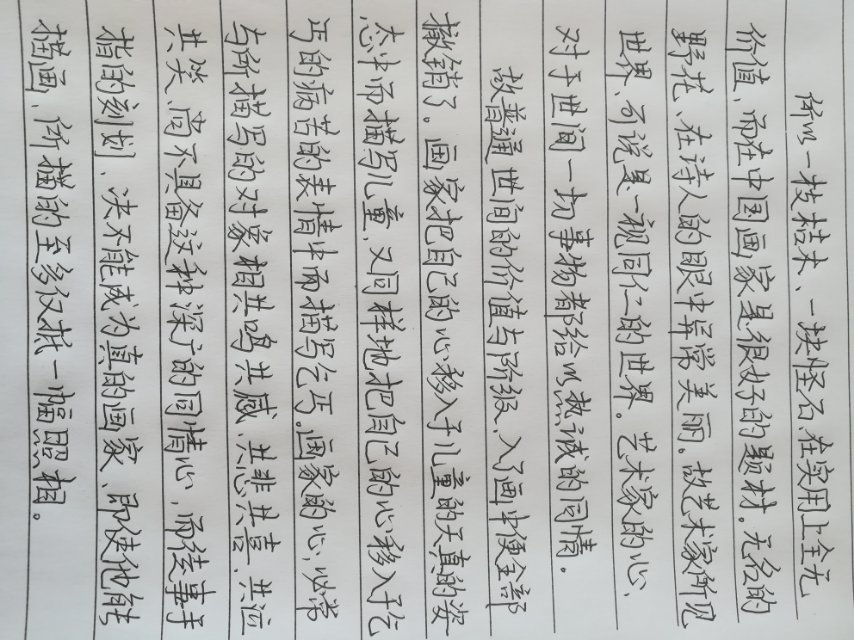 所以一枝枯木、一块怪石,在实用上全无
价值,而在中国画家是很好的题材。无名的
野花、在诗人的眼中异常美丽。故艺术家所见
世界、可说是一视同仁的世界。艺术家的心、
对于世间一切事物都给以热诚的同情。
故普通世间的价值与阶级、入了画中便全部
撤销了。画家把自己的心移入于儿童的天真的姿
态中而描写儿童、又同样地把自己的心移入于乞
丐的病苦的表情中而描写乞丐。画家的心,必常
与所描写的对象相共鸣共感、共悲共喜、共泣
共笑、尚不具备这种深广的同情心,而徒事手
指的刻划、决不能成为真的画家、即使他能
描画、所描的至多仅抵一幅照相。